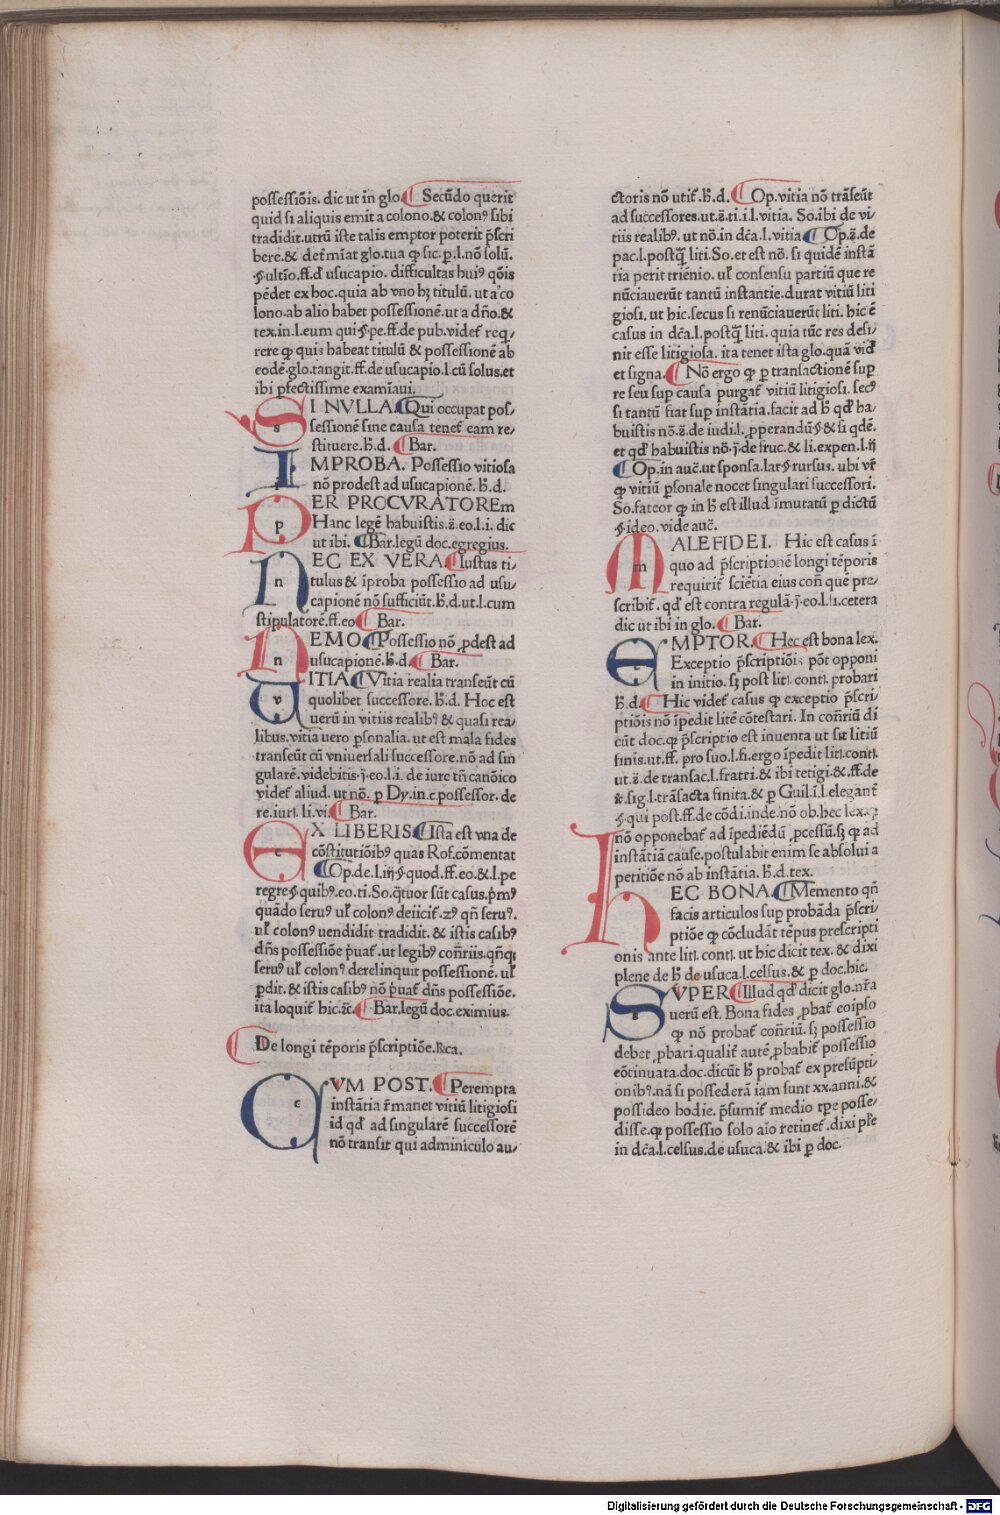 possessiōis. dic ut in glo. ¶ Secūdo querit
quid si aliquis emit a colono.& colonꝰ sibi
tradidit.utrū iste talis emptor poterit p̄scri
bere.& determīat glo.tua ꝙ sic.ꝑ.l.nō solū.
§.ultīo.ff.d̄ usucapio. difficultas huiꝰ qōis
pēdet ex hoc.quia ab vno hꝫ titulū. ut a co
lono.ab alio habet possessionē.ut a dño.&
tex.in.l.eum qui §.pe.ff.de pub.videt᷑ req̄
rere ꝙ quis habeat titulū & possessionē ab
eodē.glo.tangit.ff.de usucapio.l.cū solus.et
ibi ꝑfectissime examīaui.
SI NVLLA. ¶ Qui occupat pos
sessionē sine causa tenet᷑ eam re
stituere.h̄.d. ¶ Bar.
IMPROBA. Possessio vitiosa
nō prodest ad usucapionē.h̄.d.
PER PROCVRATOREm
Hanc legē habuistis.s̄.eo.l.i. dic
ut ibi. ¶ Bar.legū doc.egregius.
NEC EX VERA. ¶ Iustus ti
tulus & īproba possessio ad usu
capionē nō sufficiūt.h̄.d.ut.l.cum
stipulatorē.ff.eo ¶ Bar.
NEMO ¶ Possessio nō ꝓdest ad
usucapionē.h̄.d. ¶ Bar.
VITIA ¶ Vitia realia transeūt cū
quolibet successore.h̄.d. Hoc est
uerū in vitiis realibꝰ & quasi rea
libus.vitia uero ꝑsonalia. ut est mala fides
transeūt cū vniuersali successore.nō ad sin
gularē.videbitis.j̄.eo.l.i. de iure tn̄ canōico
videt᷑ aliud. ut nō. ꝑ Dy.in.c.possessor. de
re.iur.li.vi. ¶ Bar.
EX LIBERIS ¶ Ista est vna de
cōstitutiōibꝰ quas Rof.cōmentat
¶ Op.de.l.iiii.§.quod.ff.eo.& l.pe
regre §.quibꝰ.eo.ti.So.q̄tuor sūt casus.p̄mꝰ
quādo seruꝰ ul᷑ colonꝰ deiicit᷑.2ꝰ qn̄ seruꝰ.
ul᷑ colonꝰ uendidit tradidit. & istis casibꝰ
dn̄s possessiōe p̄uat᷑.ut legibꝰ cōn̄riis.qn̄qꝫ
seruꝰ ul᷑ colonꝰ derelinquit possessionē. ul᷑
ꝑdit. & istis casibꝰ nō p̄uat᷑ dn̄s possessiōe.
ita loquit᷑ hic.⁊c̄. ¶ Bar.legū doc.eximius.
¶ De longi tēporis p̄scriptiōe.Rca.
QVM POST. ¶ Perempta
instātia r̄manet vitiū litigiosi
id qd̄ ad singularē successorē
nō transit qui adminiculo au
ctoris nō utit᷑.h̄.d. ¶ Op.vitia nō trāseūt
ad successores.ut.s̄.ti.i.l.vitia. So.ibi de vi
tiis realibꝰ. ut nō.in dc̄a.l.vitia ¶ Op.s̄.de
pac.l.postq̄ liti.So.et est nō. si quidē instā
tia perit triēnio. ul᷑ consensu partiū que re
nūciauerūt tantū instantie.durat vitiū liti
giosi. ut hic.secus si renūciauerūt liti. hic ē
casus in dc̄a.l.postq̄ liti. quia tūc res desi
nit esse litigiosa. ita tenet ista glo.quā vid̄
et signa. ¶ Nō ergo ꝙ ꝑ transactionē sup̄
re seu sup̄ causa purgat᷑ vitiū litigiosi. secꝰ
si tantū fiat sup̄ instātia.facit ad h̄ qd̄ ha
buistis nō.s̄.de iudi.l.ꝓperandū § & si qdē.
et qd̄ habuistis nō.j̄.de fruc.& li.expen.l.ii
¶ Op.in auc̄.ut sponsa.lar.§ rursus. ubi vr̄
ꝙ vitiū ꝑsonale nocet singulari successori.
So.fateor ꝙ in h̄ est illud īmutatū ꝑ dictū
§.ideo.vide auc̄.
MALEFIDEI. Hic est casus ī
quo ad p̄scriptionē longi tēporis
requirit᷑ sciētia eius con̄ quē pre
scribit᷑. qd̄ est contra regulā.j̄.eo.l.ii.cetera
dic ut ibi in glo. ¶ Bar.
EMPTOR. ¶ Hec est bona lex.
Exceptio p̄scriptiōis pōt opponi
in initio. sꝫ post liti. conti. probari
h̄.d. ¶ Hic videt᷑ casus ꝙ exceptio p̄scri
ptiōis nō īpedit litē cōtestari. In con̄riū di
cūt doc.ꝙ p̄scriptio est inuenta ut sit litiū
finis.ut.ff. pro suo.l.fi.ergo īpedit liti.conti.
ut.s̄.de transac.l.fratri.& ibi tetigi.& ff.de
&.sig.l.trāsacta finita.& ꝑ Guil.ī.l.elegant᷑
§.qui post.ff.de cōdi.inde.nō ob.hec lex.qꝛ
nō opponebat᷑ ad īpediēdū ꝓcessū.sꝫ ꝙ ad
instātiā cause.postulabit enim se absolui a
petitiōe nō ab instātia. h̄.d.tex.
HEC BONA. ¶ Memento qn̄
facis articulos sup̄ probāda p̄scri
ptiōe ꝙ cōcludāt tēpus prescripti
onis ante liti. conti. ut hic dicit tex. & dixi
plene de h̄ de usuca.l.celsus.& ꝑ doc.hic.
SVPER ¶ Illud qd̄ dicit glo.nr̄a
uerū est. Bona fides ꝓbat᷑ eoipso
ꝙ nō probat᷑ con̄riū. sꝫ possessio
debet ꝓbari.qualit᷑ autē ꝓbabit᷑ possessio
cōtinuata.doc.dicūt h̄ probat᷑ ex presūpti
onibꝰ.nā si possederā iam sunt xx.anni.&
possideo hodie. p̄sumit᷑ medio tp̄e posse
disse.ꝙ possessio solo aīo retinet᷑.dixi pl̄e
in dc̄a.l.celsus.de usuca.& ibi ꝑ doc.
Digitalisierung gefördert durch die Deutsche Forschungsgemeinschaft - DFG